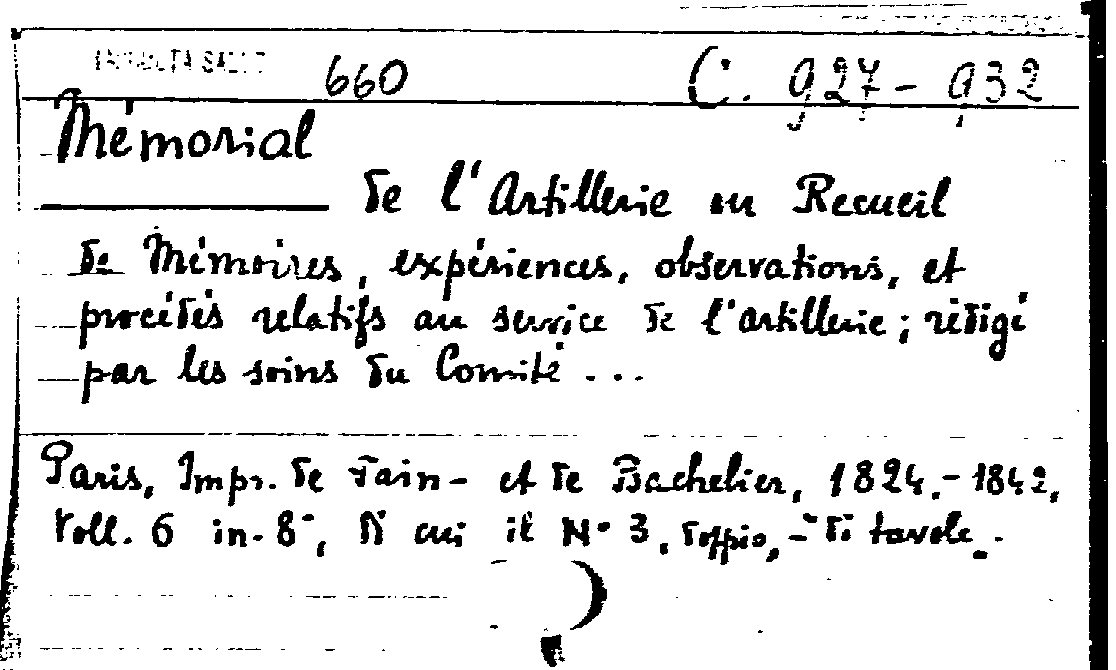 660 C. 927 - 932
Mémorial
de l'Artillerie ou Recueil
de Mémoires, expériences, observations, et
procédés relatifs au service de l'artillerie; rédigé
par les soins du Comité ...
Paris, Impr. de Fain - et de Bachelier, 1824.-1842,
Voll. 6 in-8°, di cui il N° 3, doppio, - di tavole.